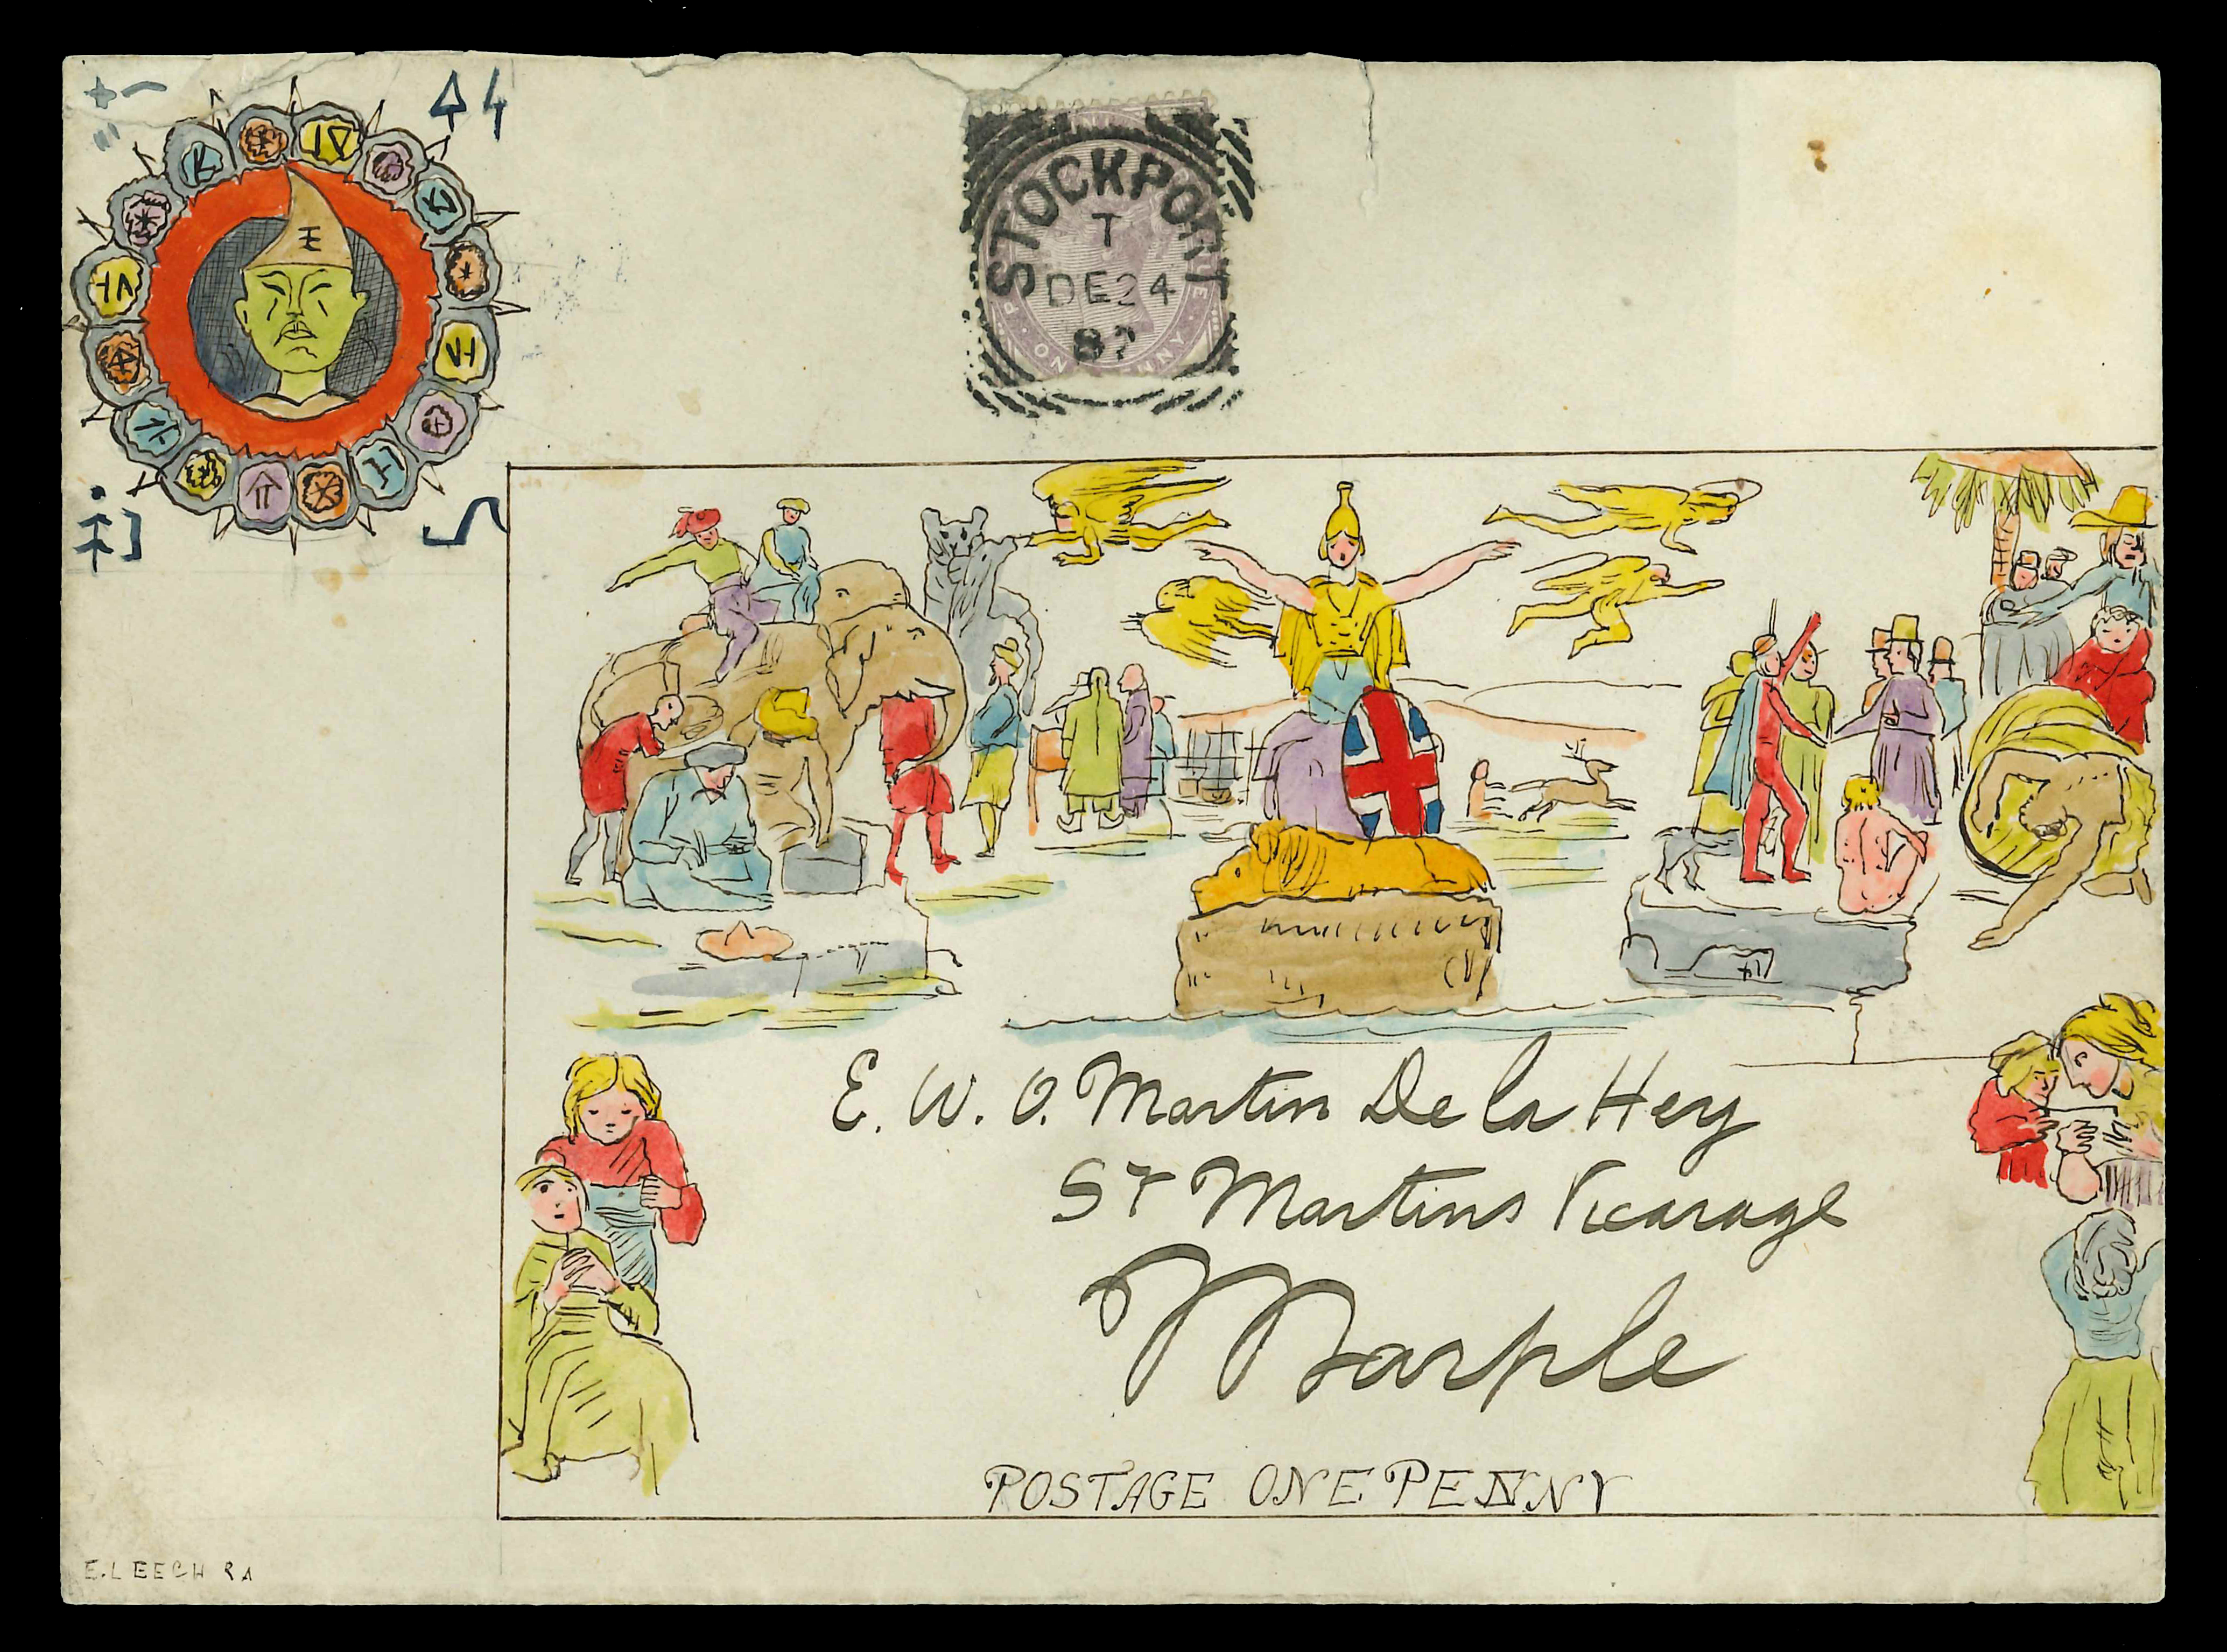 STOCKPORT
T
DE24
E. W. O. Martin De la Hey
St Martins Vicarage
Marple
POSTAGE ONE PENNY
E. LEECH RA